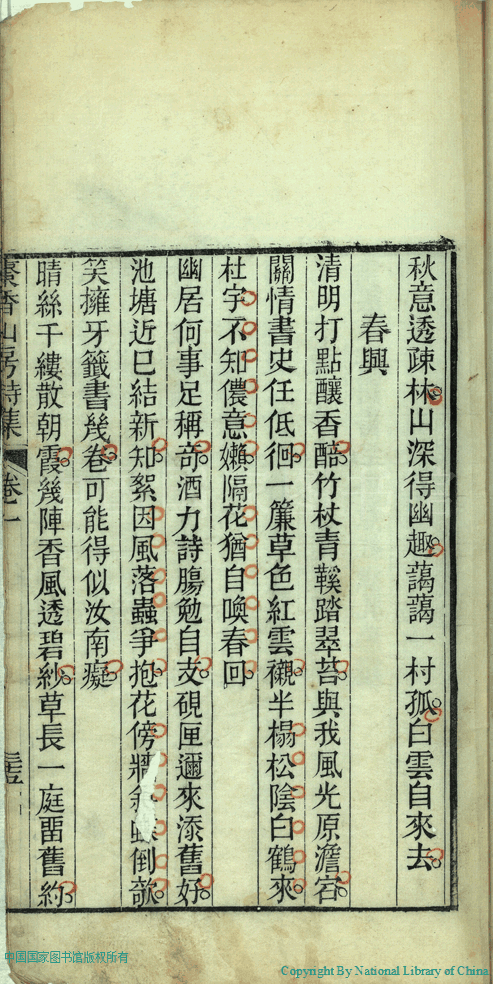 秋意透疎林山深得幽趣藹藹一村孤白雲自來去
春興
清明打點釀香醅竹杖青鞵踏翠苔與我風光原澹宕
關情書史任低徊一簾草色紅雲襯半榻松陰白鶴來
杜宇不知儂意嬾隔花猶自喚春回
幽居何事足稱奇酒力詩腸勉自支硯匣邇來添舊好
池塘近已結新知絮因風落蟲爭抱花傍牆倒欹
笑擁牙籤書幾卷可能得似汝南癡
晴絲千縷散朝霞幾陣香風透碧紗草長一庭畱舊約
香山房詩集 卷一
中国国家图书馆版权所有
Copyright By National Library of China